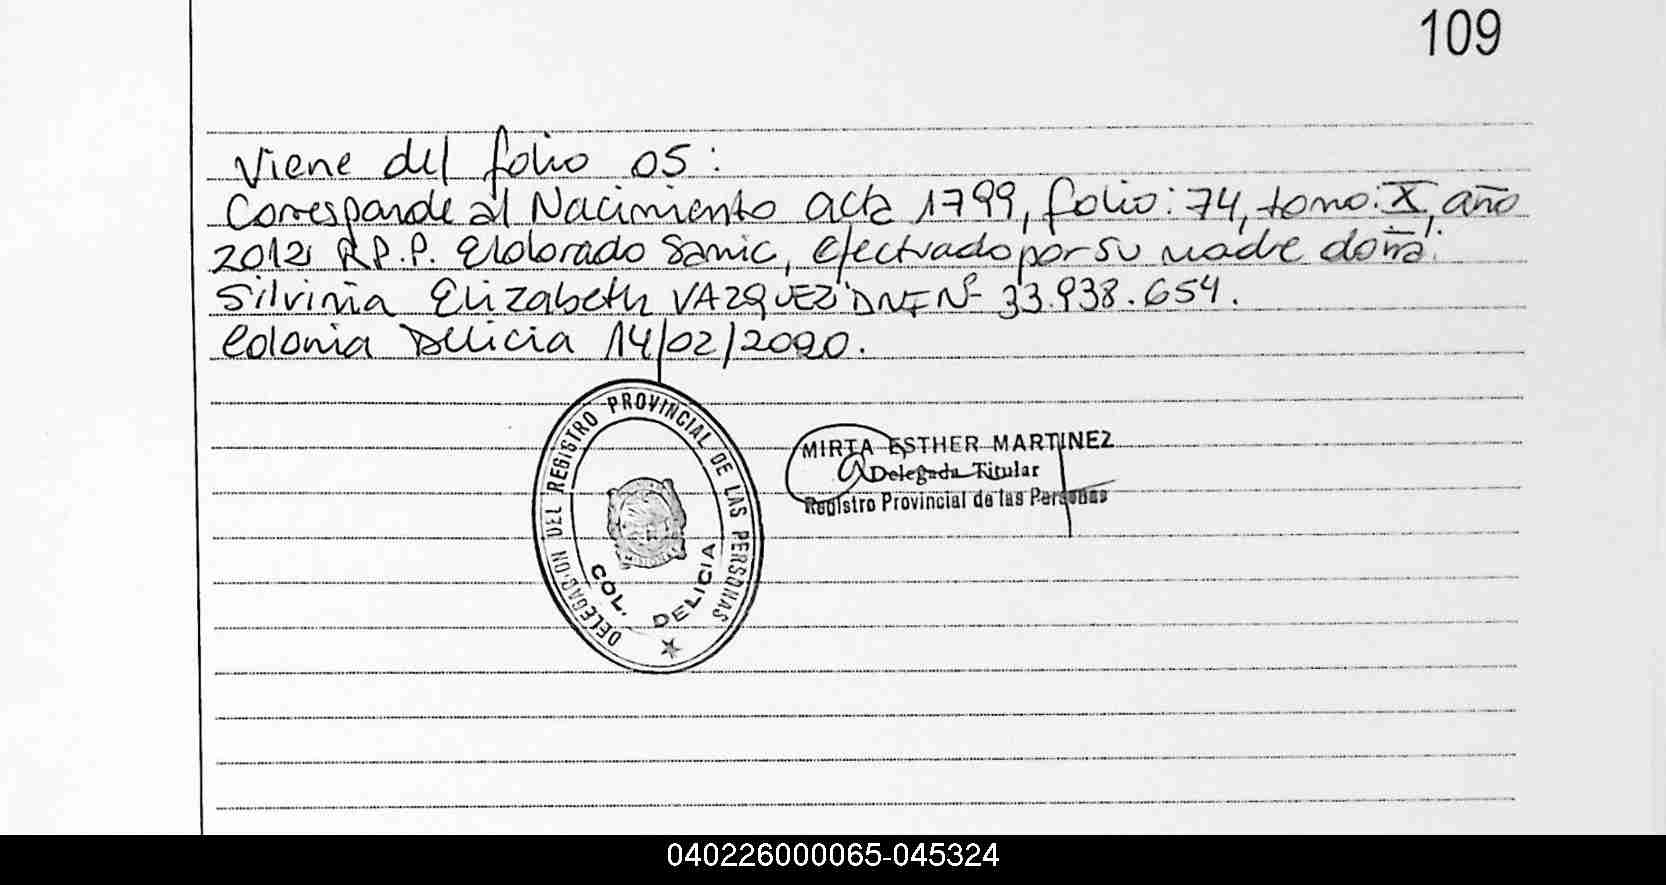 109
Viene del folio 05:
Corresponde al Nacimiento acta 1799, folio: 74, tomo: X, año
2012 R.P.P. Eldorado Samic, efectuado por su madre doña:
Silvinia Elizabeth VAZQUEZ DNI Nº 33.938.654.
Colonia Delicia 14/02/2020.
DELEGACION DEL REGISTRO PROVINCIAL DE LAS PERSONAS
COL. DELICIA
MIRTA ESTHER MARTINEZ
Delegada Titular
Registro Provincial de las Personas
040226000065-045324